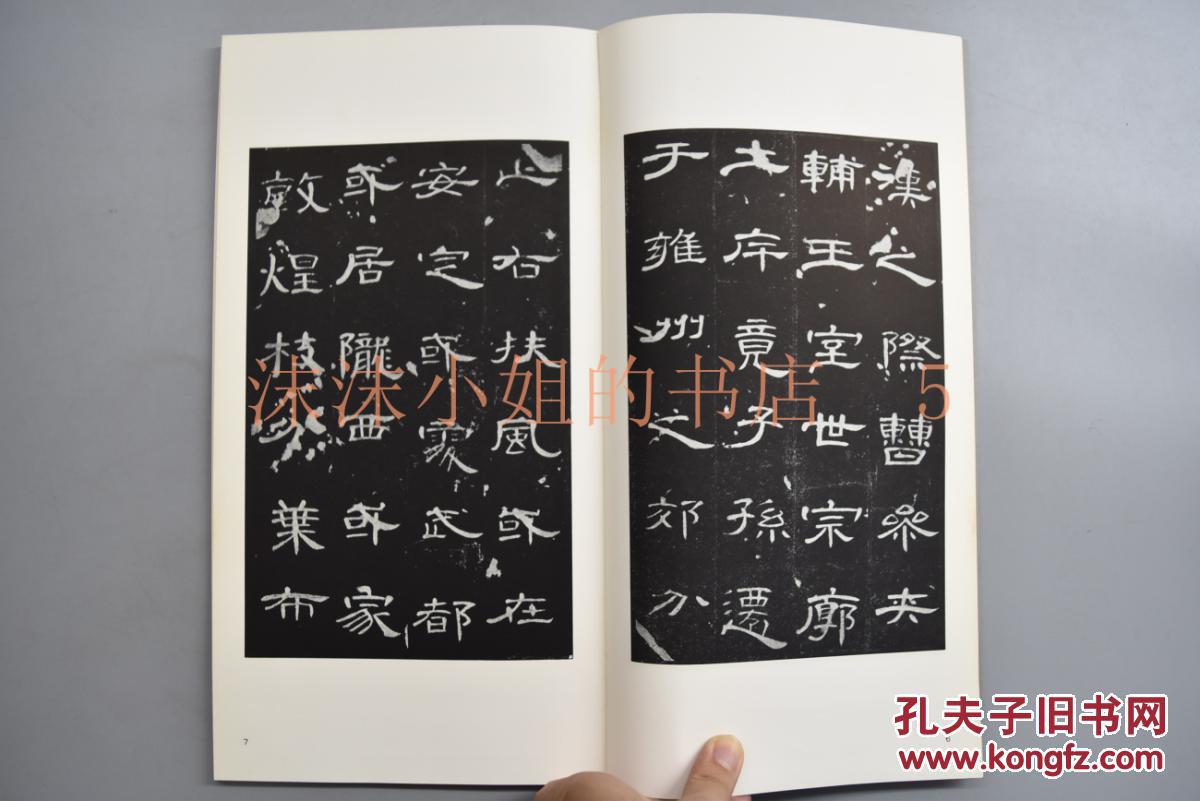 漢之際曹參夾
輔王室世宗廓
土斥竟子孫遷
于雍州之郊分
止右扶風或在
安定或處武都
或居隴西或家
敦煌枝分葉布
6
7
沫沫小姐的书店 5
孔夫子旧书网
www.kongfz.com